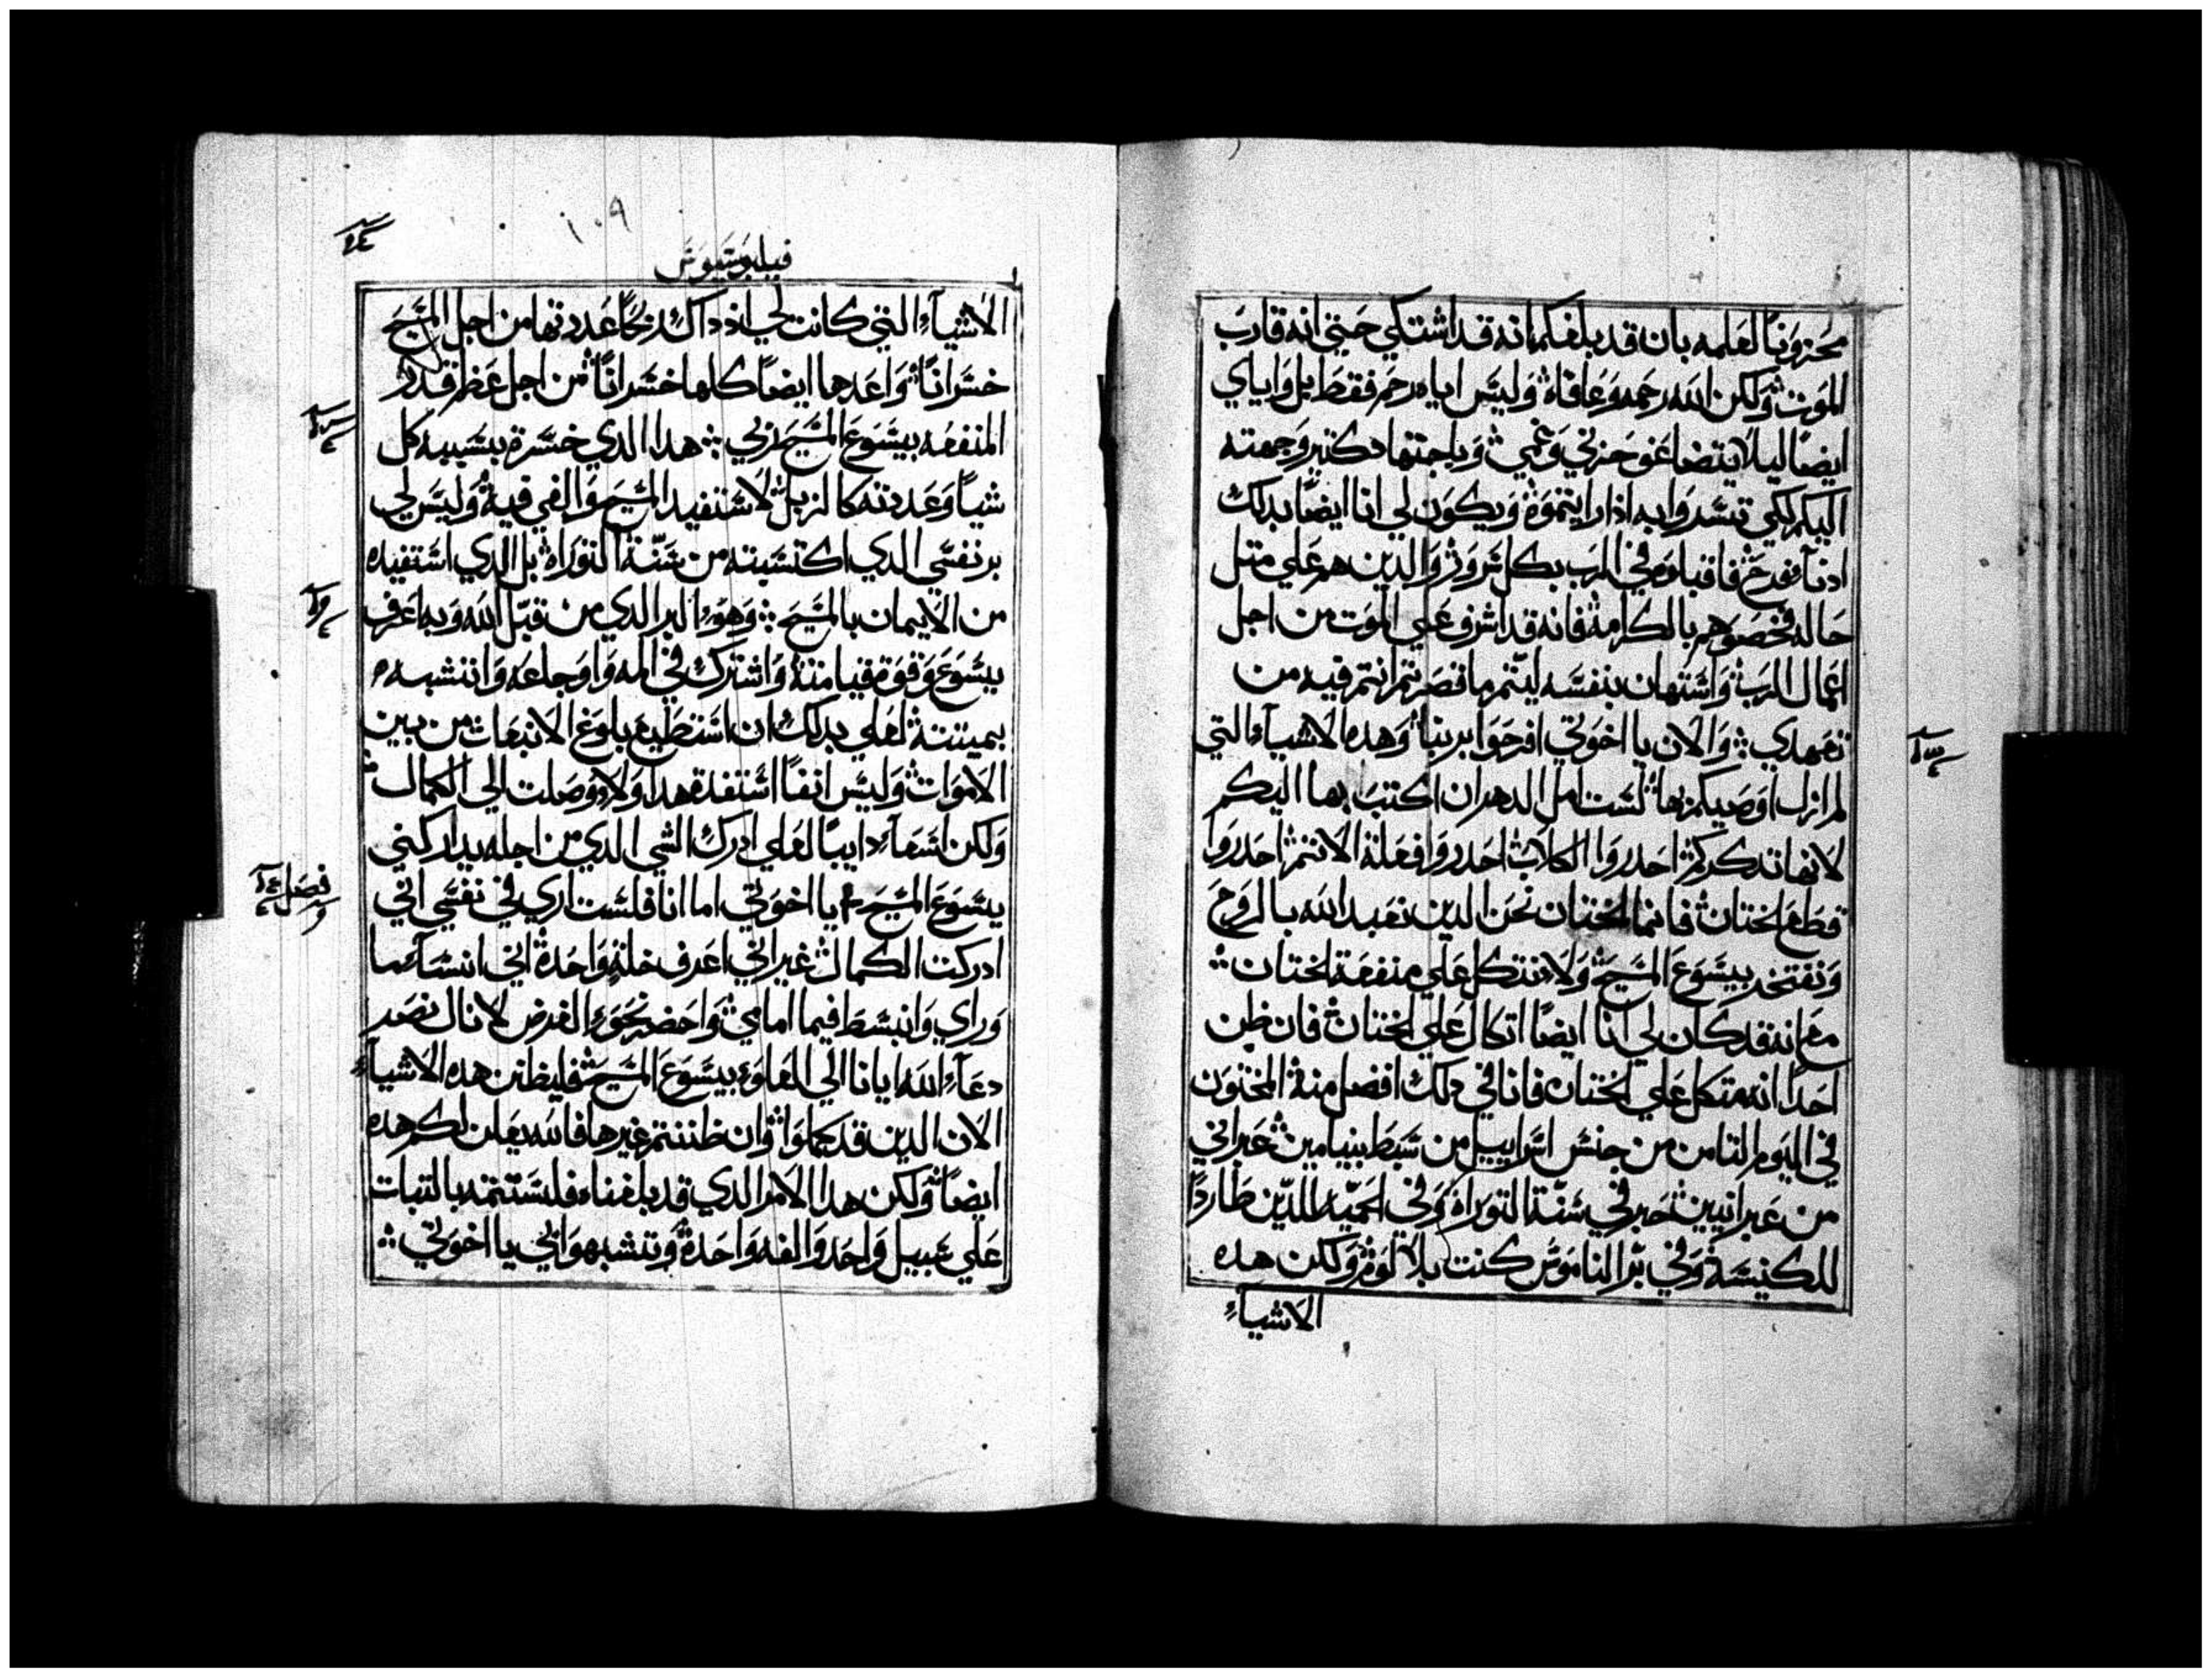 محزونًا لعلمه بان قد بلغكم انه قد اشتكي حتي انه قارب
الموت ولكن الله رحمه وعافاه وليس اياه رحم فقط بل واياي
ايضًا ليلا يتضاعف حزني وغمي وباجتهاد كتير وجهته
اليكم لكي تسروا به ادا رايتموه ويكون لي انا ايضًا بدلك
ادنا فرح فاقبلوه في الرب بكل سرور والدين هم علي متل
حاله فخصوهم بالكرامه فانه قد اشرف علي الموت من اجل
اعمال الرب واستهان بنفسه ليتم ما قصرتم انتم فيه من
تعهدي والان يا اخوتي افرحوا بربنا وهده الاشياء التي
لم ازل اوصيكم بها لست امل الدهر ان اكتب بها اليكم
لانها تدكركم احدروا الكلاب احدروا فعلة الاتم احدروا
قطع الختان فانما الختان نحن الدين نعبد الله بالروح
ونفتخر بيسوع المسيح ولا نتكل علي منفعة الختان
مع انه قد كان لي انا ايضًا اتكال علي الختان فان ظن
احدًا انه متكل علي الختان فانا في دلك افضل منه المختون
في اليوم التامن من جنس اسراييل من سبط بنيامين عبراني
من عبرانيين حبر في سنة التوراة وفي الحميه للدين طاردًا
للكنيسه وفي بر الناموس كنت بلا لوم ولكن هده
الاشياء
١٠٩
فيلبوسيوس
الاشياء التي كانت لي اد داك ربحًا عددتها من اجل المسيح
خسرانًا واعدها ايضًا كلها خسرانًا من اجل عظم قدر
المنفعه بيسوع المسيح ربي هدا الدي خسرة بسببه كل
شيا وعددته كالزبل لاستفيد المسيح والفي فيه وليس لي
بر نفسي الدي اكتسبته من سنة التوراه بل الدي استفيده
من الايمان بالمسيح وهو البر الدي من قبل الله وبه اعرف
بيسوع وقوة قيامته واشترك في المه واوجاعه واتشبه
بميتته لعلي بدلك ان استطيع بلوغ الانبعات من بين
الاموات وليس انفًا استفدة هدا ولا وصلت الي الكمال
ولكن اسعا دايبًا لعلي ادرك الشي الدي من اجله يداركني
يسوع المسيح يا اخوتي اما انا فلست اري في نفسي اني
ادركت الكمال غير اني اعرف خلة واحدة اني انسا ما
وراي وانبسط فيما امامي واحضر نحو الغرض لانال نصر
دعاء الله ايانا الي العلو بيسوع المسيح فليظنن هده الاشياء
الان الدين قد كملوا وان ظننتم غيرها فالله يعلن لكم هده
ايضًا ولكن هدا الامر الدي قد بلغناه فلنستتمه بالتبات
علي سبيل واحد والفه واحدة وتشبهوا بي يا اخوتي
فصل